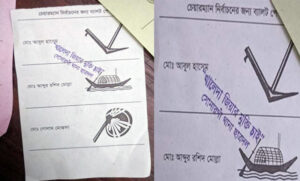 চেয়ারম্যান নির্বাচনের জন্য ব্যালট পে
মোঃ আবুল হাসেম
খালেদা জিয়ার মুক্তি চাই
মোঃ আব্দুর রশিদ মোল্লা
মোঃ গোলাম মোস্তফা
চেয়ারম্যান নির্বাচনের জন্য ব্যালট পে
মোঃ আবুল হাসেম
"খালেদা জিয়ার মুক্তি চাই"
মোঃ আব্দুর রশিদ মোল্লা